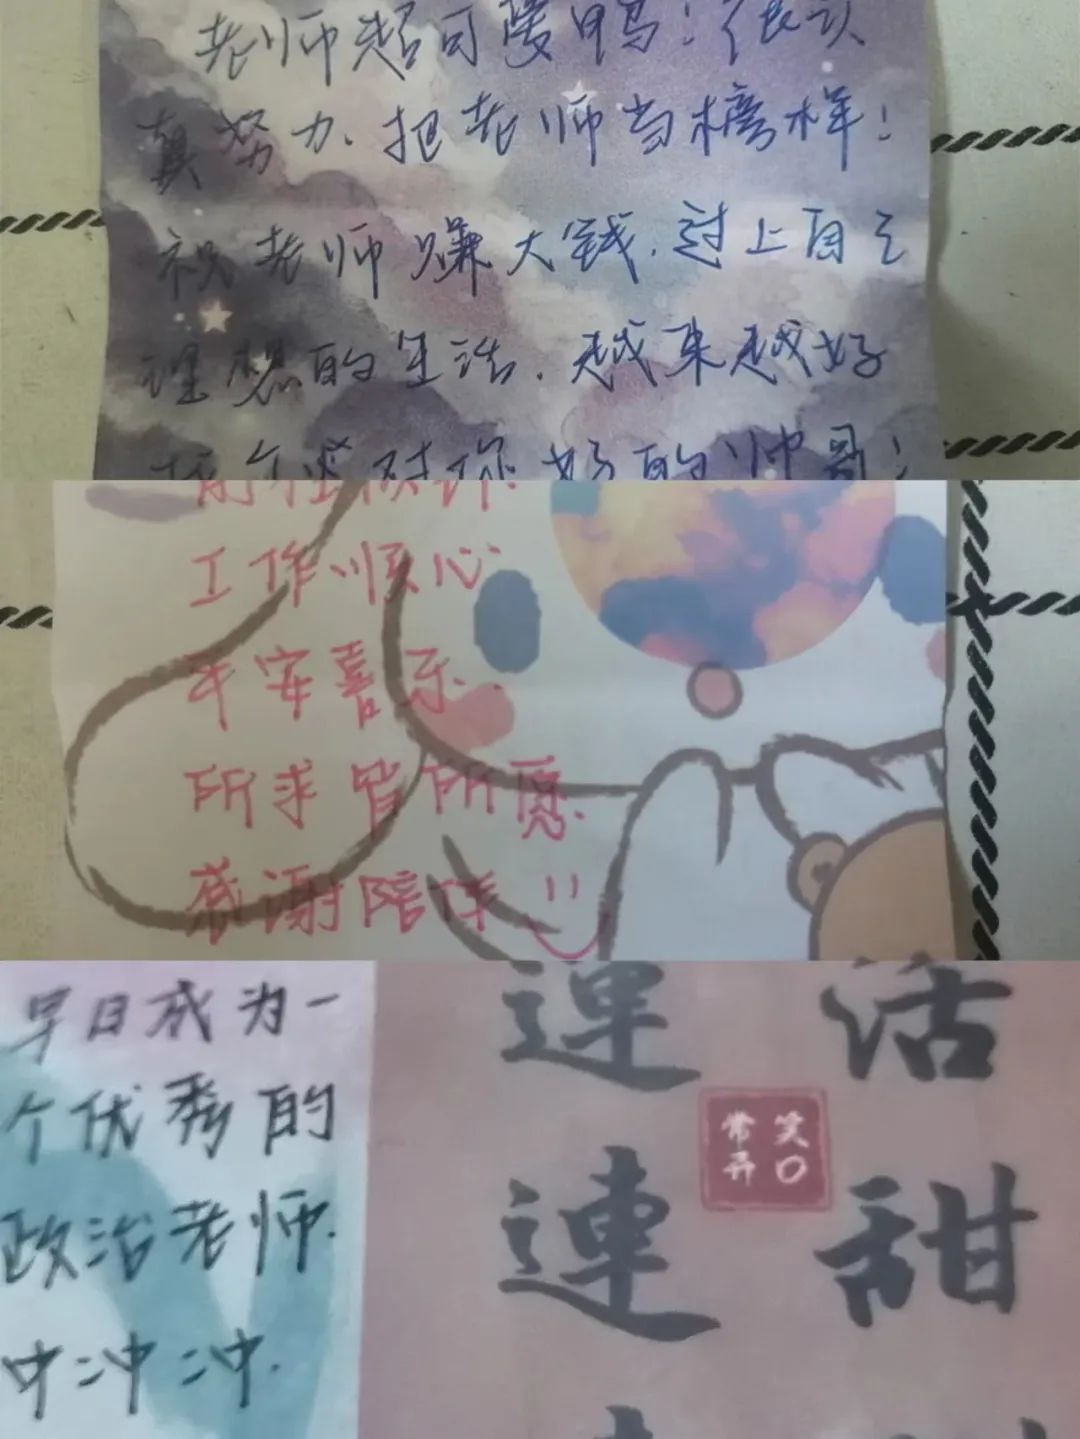 老师超可爱鸭！很认
真努力、把老师当榜样！
祝老师赚大钱，过上自己
理想的生活，越来越好
对你好的帅哥
前程似锦.
工作顺心
平安喜乐.
所求皆所愿.
感谢陪伴
早日成为一
个优秀的
政治老师.
冲冲冲.
活甜
運連
笑口
常开